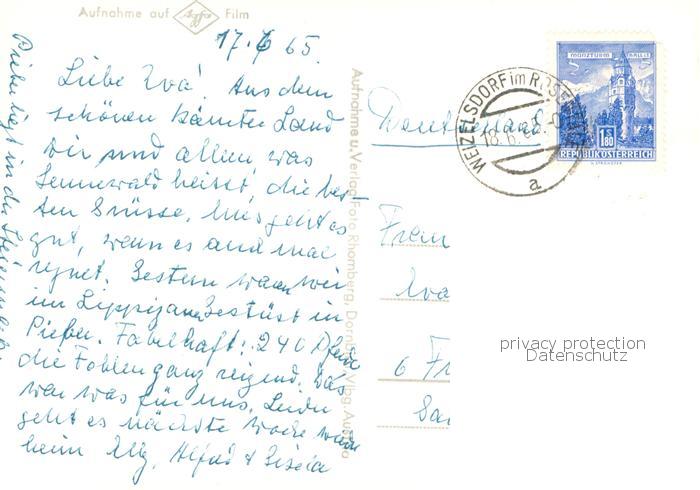 Aufnahme auf Agfa Film
17.6 65.
Liebe Eva! Aus dem
schönen Kärnten Land
Dir und allem was
Lennewald heisst, die bes-
ten Grüsse. Uns geht es
gut, wenn es auch mal
regnet. Gestern waren wir
im Lippizaner Gestüt in
Pieber. Fabelhaft! 240 Pferde
die Fohlen ganz reizend. Das
war was für uns. Leider
geht es nächste Woche wieder
heim Allg. Alfred + Gisela
Pieber liegt in der Steiermark.
Aufnahme u. Verlag Foto Rhomberg, Dornbirn, Vlbg. Austria
Deutschland
MÜNZTURM HALL I.T.
S 1.80
REPUBLIK ÖSTERREICH
WEIZELSDORF im ROSENTAL
18.6.65
a
Frau
Eva
6 Fr
privacy protection
Datenschutz